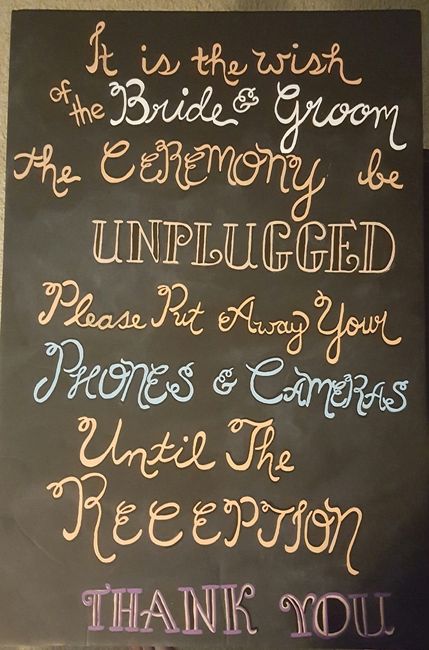 It is the wish
of the Bride & Groom
the CEREMONY be
UNPLUGGED
Please Put Away Your
PHONES & CAMERAS
Until The
RECEPTION
THANK YOU